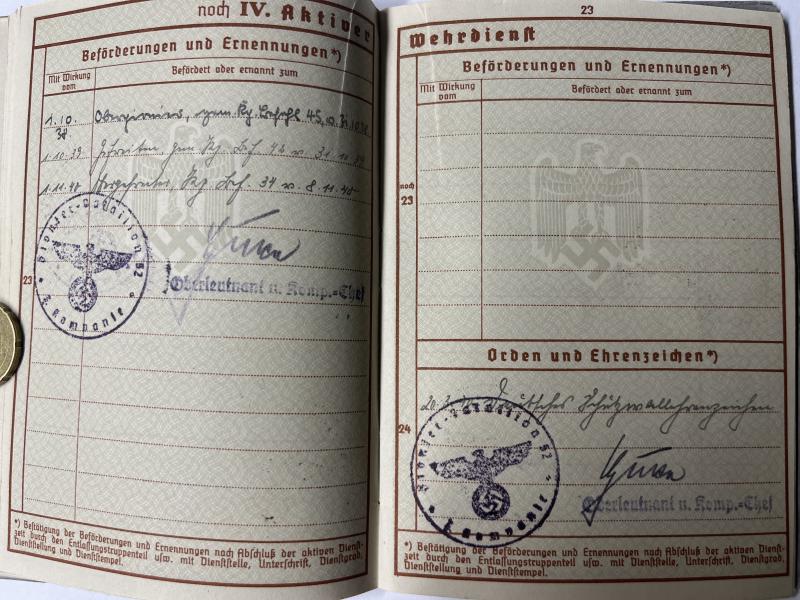 noch IV. Aktiver
Beförderungen und Ernennungen*)
Mit Wirkung
vom
Befördert oder ernannt zum
1.10.
38
Oberpionier, gem. Kp. Befehl 45, v.
1.10.39 Gefreiten gem Kp. Bef. v 31 10
1.11.40 Obergefreiter, Kp. Bef. 34 v. 8.11.40
Pionier-Bataillon 52
Oberleutnant u. Komp.-Chef
23
Kompanie
*) Bestätigung der Beförderungen und Ernennungen nach Abschluß der aktiven Dienst-
zeit durch den Entlassungstruppenteil usw. mit Dienststelle, Unterschrift, Dienstgrad,
Dienststellung und Dienststempel.
23
Wehrdienst
Beförderungen und Ernennungen*)
Mit Wirkung
vom
Befördert oder ernannt zum
noch
23
Orden und Ehrenzeichen*)
Deutsches Schutzwallehrenzeichen
24
Pionier-Bataillon 52
Kompanie
Oberleutnant u. Komp.-Chef
*) Bestätigung der Beförderungen und Ernennungen nach Abschluß der aktiven Dienst-
zeit durch den Entlassungstruppenteil usw. mit Dienststelle, Unterschrift, Dienstgrad,
Dienststellung und Dienststempel.